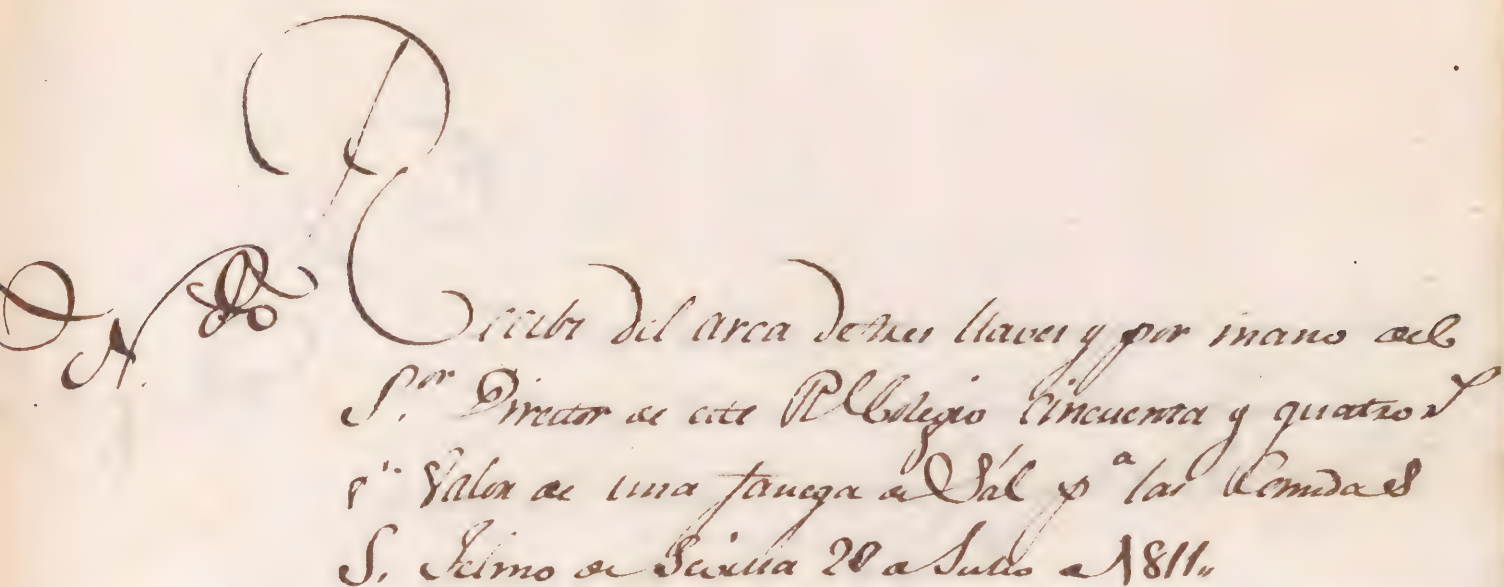 N. 8
Recibi del arca de tres llaves y por mano del
S.or Director de este Rl Colegio Cincuenta y quatro r.s
p.r Valor de una fanega de Sal p.a las Comidas
S. Telmo de Sevilla 28 de Julio de 1811,,